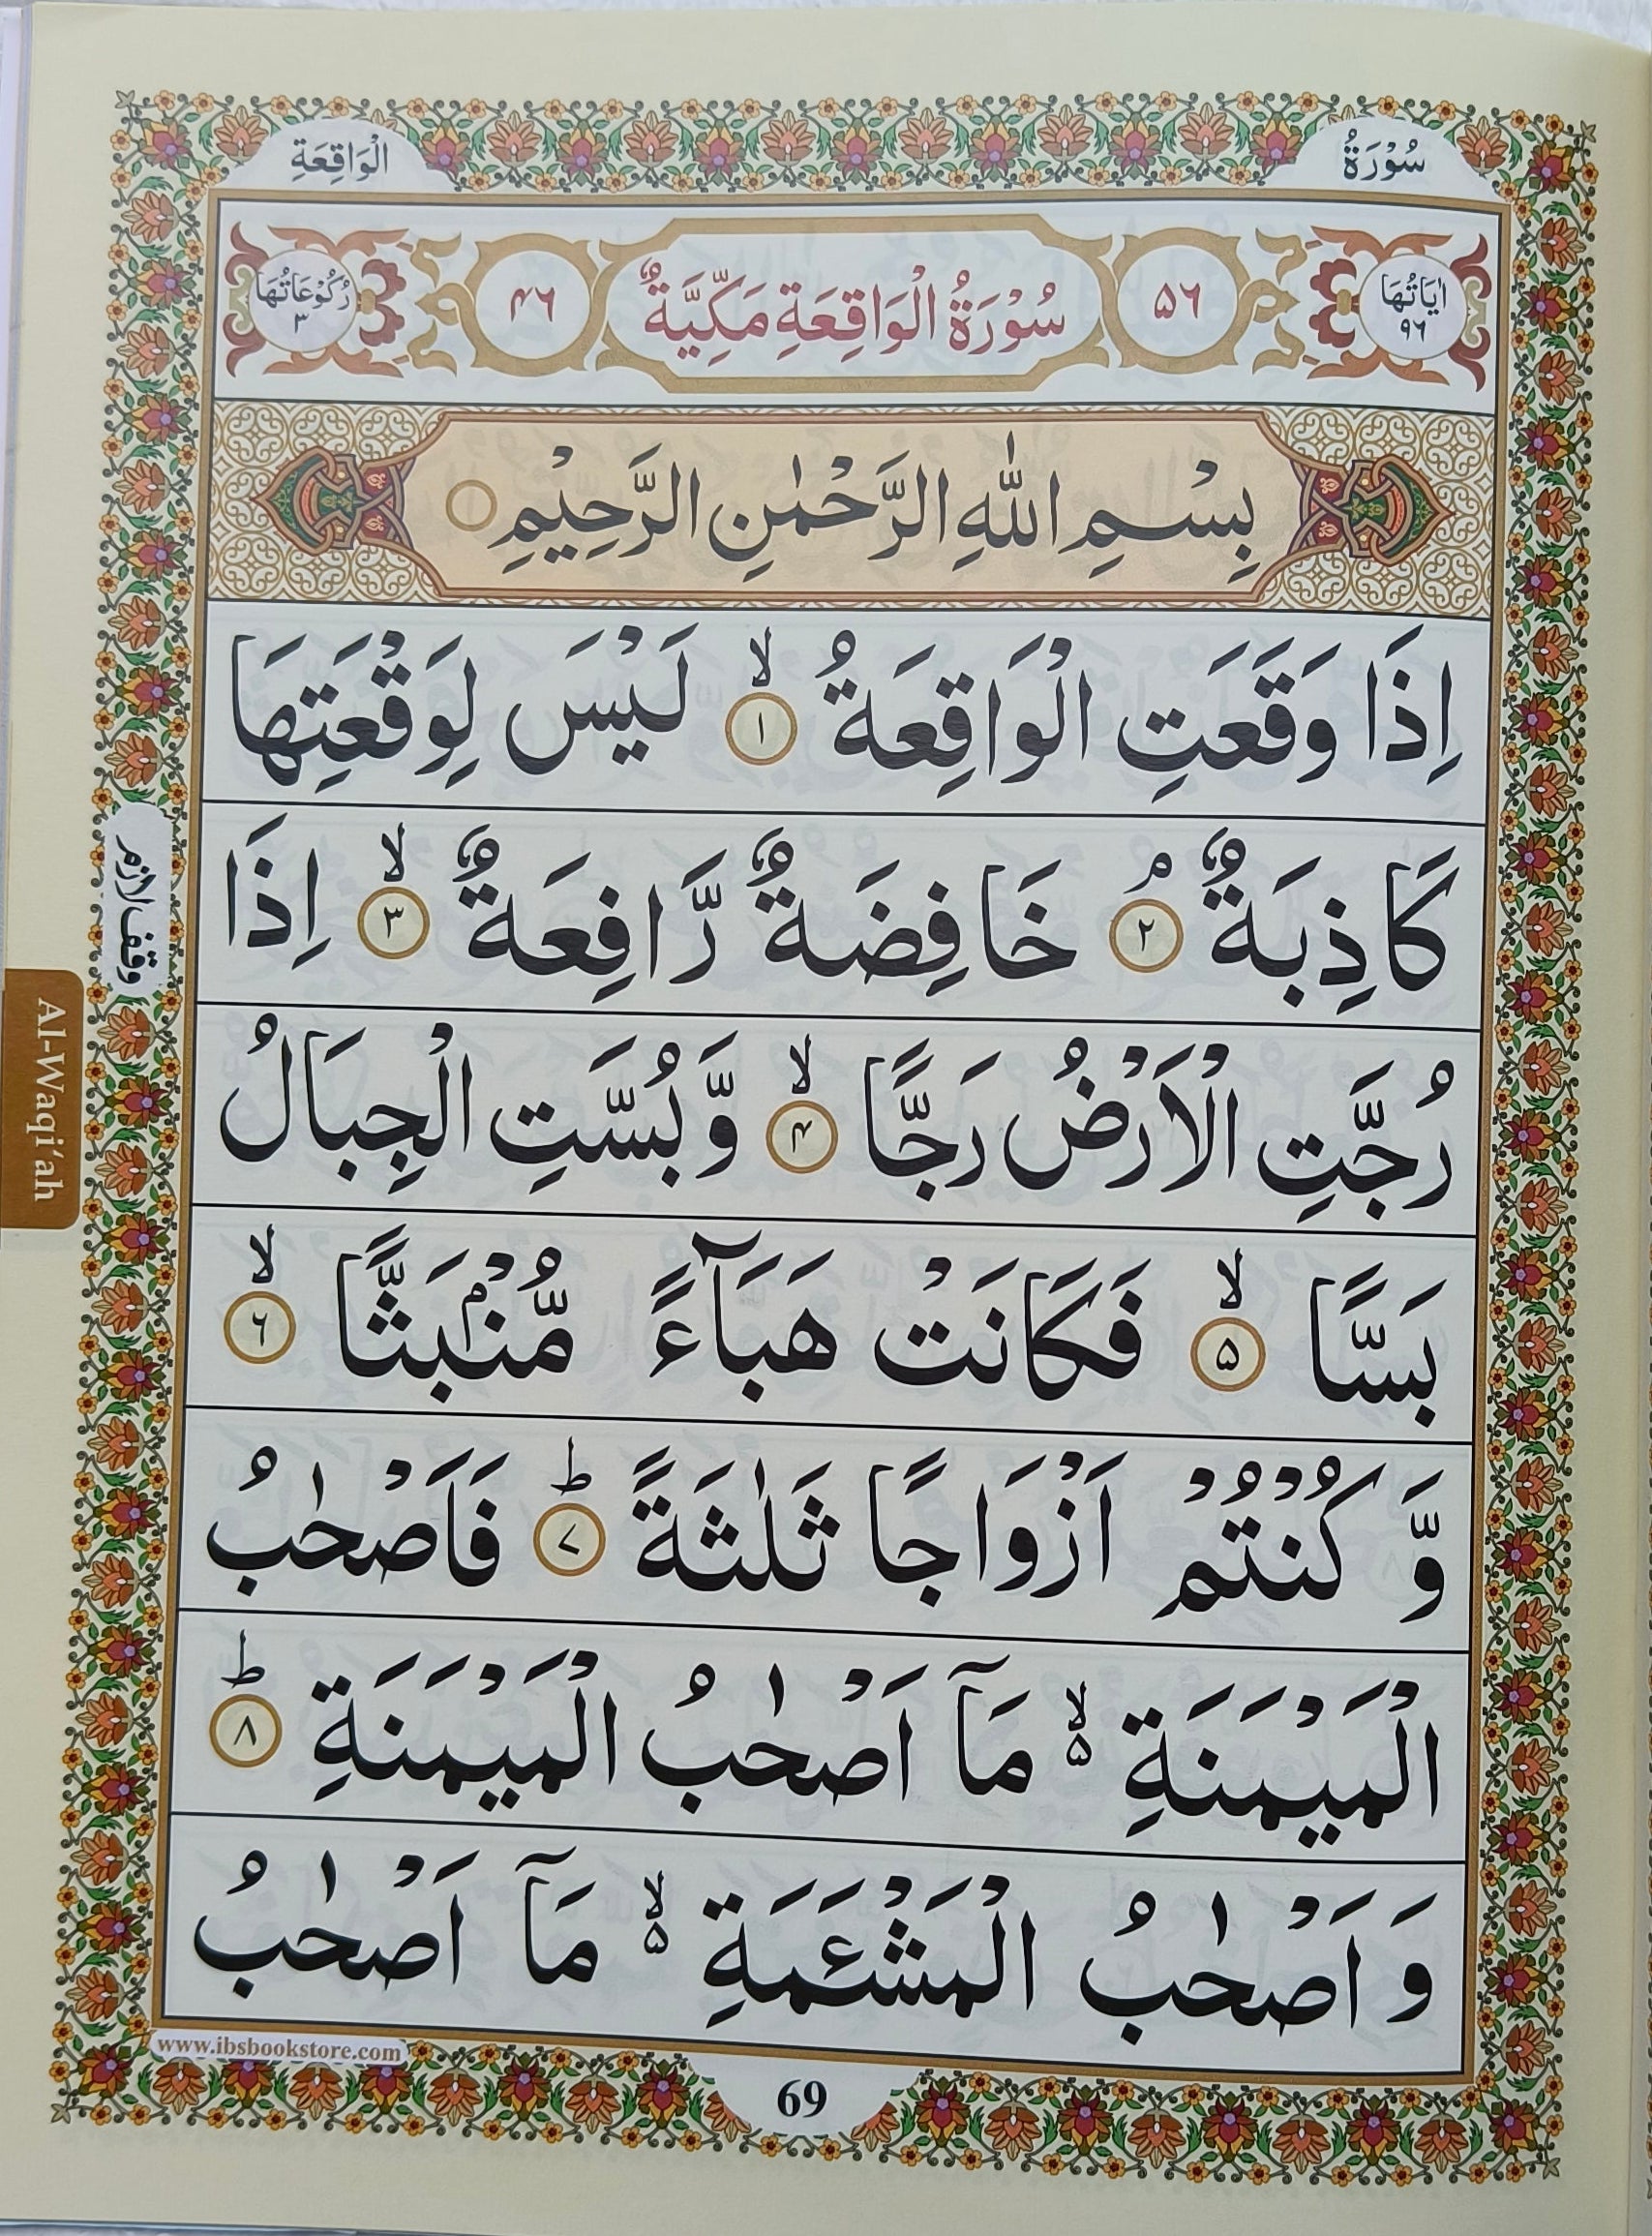 سُوْرَةُ الْوَاقِعَةِ
اٰيَاتُهَا ٩٦ ٥٦ سُوْرَةُ الْوَاقِعَةِ مَكِّيَّةٌ ۴٦ رُكُوْعَاتُهَا ٣
بِسْمِ اللّٰهِ الرَّحْمٰنِ الرَّحِيْمِ
اِذَا وَقَعَتِ الْوَاقِعَةُ ۙ ١ لَيْسَ لِوَقْعَتِهَا
كَاذِبَةٌ ۘ ٢ خَافِضَةٌ رَّافِعَةٌ ۙ ٣ اِذَا
وقف لازم
رُجَّتِ الْاَرْضُ رَجًّا ۙ ۴ وَّبُسَّتِ الْجِبَالُ
Al-Waqi‘ah
بَسًّا ۙ ۵ فَكَانَتْ هَبَآءً مُّنْۢبَثًّا ۙ ٦
وَّكُنْتُمْ اَزْوَاجًا ثَلٰثَةً ؕ ٧ فَاَصْحٰبُ
الْمَيْمَنَةِ ۙ۵ مَآ اَصْحٰبُ الْمَيْمَنَةِ ؕ ٨
وَاَصْحٰبُ الْمَشْئَمَةِ ۙ۵ مَآ اَصْحٰبُ
www.ibsbookstore.com
69